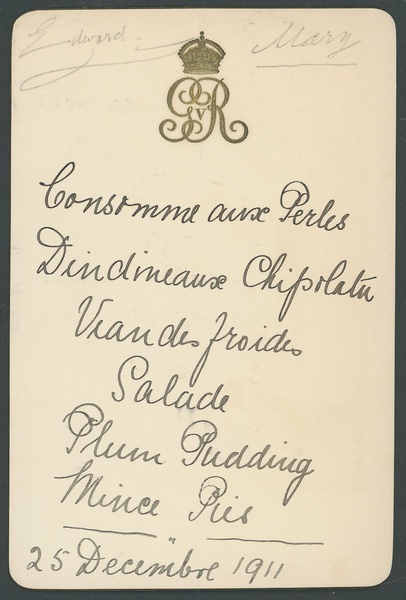 Edward Mary
GRV
Consomme aux Perles
Dindineaux Chipolata
Viandes froides
Salade
Plum Pudding
Mince Pies
25 Decembre 1911